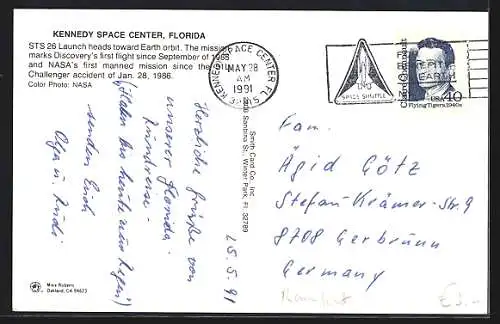 KENNEDY SPACE CENTER, FLORIDA
STS 26 Launch heads toward Earth orbit. The mission
marks Discovery's first flight since September of 1988
and NASA's first manned mission since the
Challenger accident of Jan. 28, 1986.
Color Photo: NASA
KENNEDY SPACE CENTER FL
MAY 28
AM
1991
32815
SPACE SHUTTLE
FOR
BENEFIT
EARTH
Claire Chennault
USA 40
Flying Tigers, 1940s
Herzliche Grüße von
unserer Florida-
Rundreise -
(Haben bis heute nur Regen)
senden Euch
Olga u. Rudi
25.5.91
Smith Card Co. Inc
Winter Park, Fl. 32789
Mike Roberts
Oakland, CA 94623
Fam.
Ägid Götz
Stefan-Krämer-Str. 9
8708 Gerbrunn
Germany